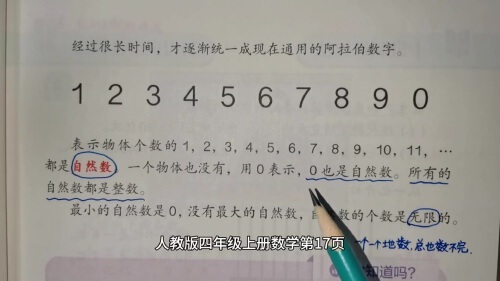 经过很长时间，才逐渐统一成现在通用的阿拉伯数字。
1 2 3 4 5 6 7 8 9 0
表示物体个数的1，2，3，4，5，6，7，8，9，10，11，…
都是自然数。一个物体也没有，用0表示，0也是自然数。所有的
自然数都是整数。
最小的自然数是0，没有最大的自然数，自 数的个数是无限的。
人教版四年级上册数学第17页
一个一个地数，总也数不完。
知道吗？